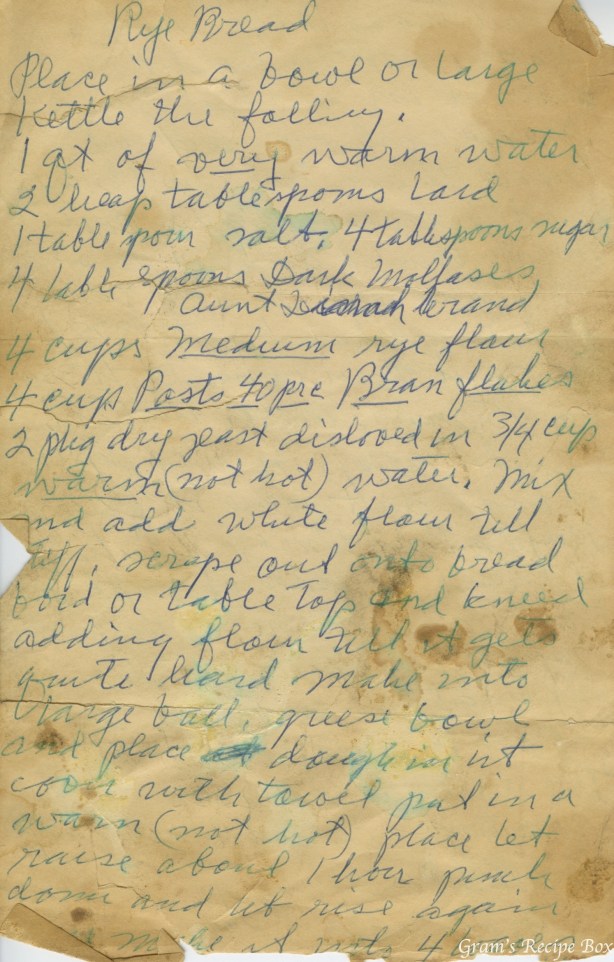 Rye Bread
Place in a bowl or large
Kettle the folling.
1 qt of very warm water
2 heap tablespoons Lard
1 tablespoon salt, 4 tablespoons sugar
4 table spoons Dark Mollases
Aunt brand
4 cups Medium rye flour
4 cups Posts 40 prc Bran flakes
2 pkg dry yeast disloved in 3/4 cup
warm (not hot) water. Mix
and add white flour till
stiff, scrape out onto bread
bord or table top and kneed
adding flour till it gets
quite hard make into
large ball, greese bowl
and place dough in it
cover with towel put in a
warm (not hot) place let
raise about 1 hour punch
down and let rise again
make it into 4
Gram's Recipe Box